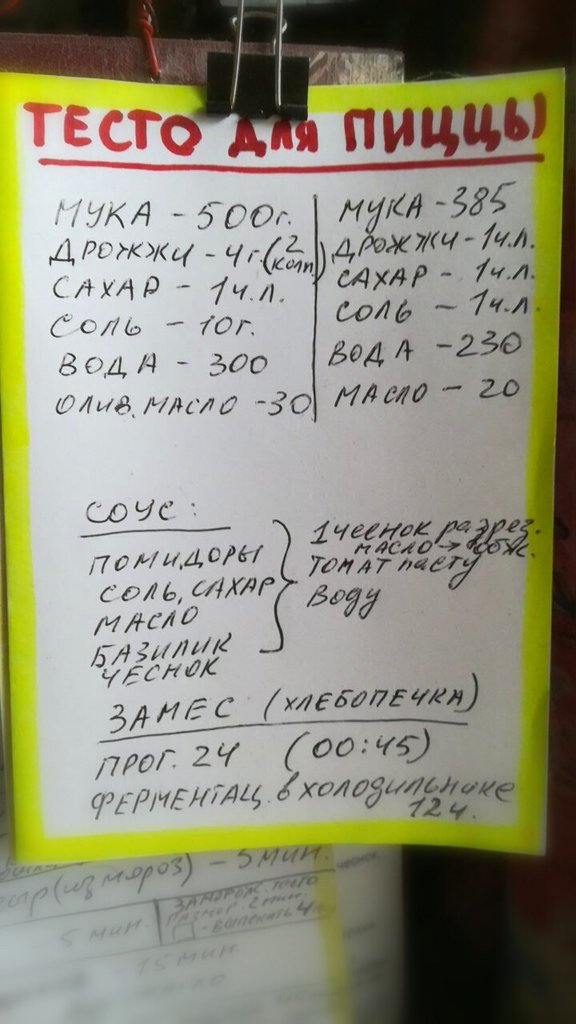 ТЕСТО для ПИЦЦЫ
МУКА - 500г.
ДРОЖЖИ - 4г. (2 колп.)
САХАР - 1ч.л.
СОЛЬ - 10г.
ВОДА - 300
ОЛИВ. МАСЛО - 30
МУКА - 385
ДРОЖЖИ - 1ч.л.
САХАР - 1ч.л.
СОЛЬ - 1ч.л.
ВОДА - 230
МАСЛО - 20
СОУС:
ПОМИДОРЫ
СОЛЬ, САХАР
МАСЛО
БАЗИЛИК
ЧЕСНОК
1 чеснок разрез.
масло →
ТОМАТ пасту
Воду
ЗАМЕС (ХЛЕБОПЕЧКА)
ПРОГ. 24 (00:45)
ФЕРМЕНТАЦ. в холодильнике
12ч.
сыр (из мороз) - 5 мин.
5 мин.
ЗАМОРОЖ. тесто
РАЗМОР. 2 мин.
- ВЫПЕКАТЬ 4
- 15 мин
масло